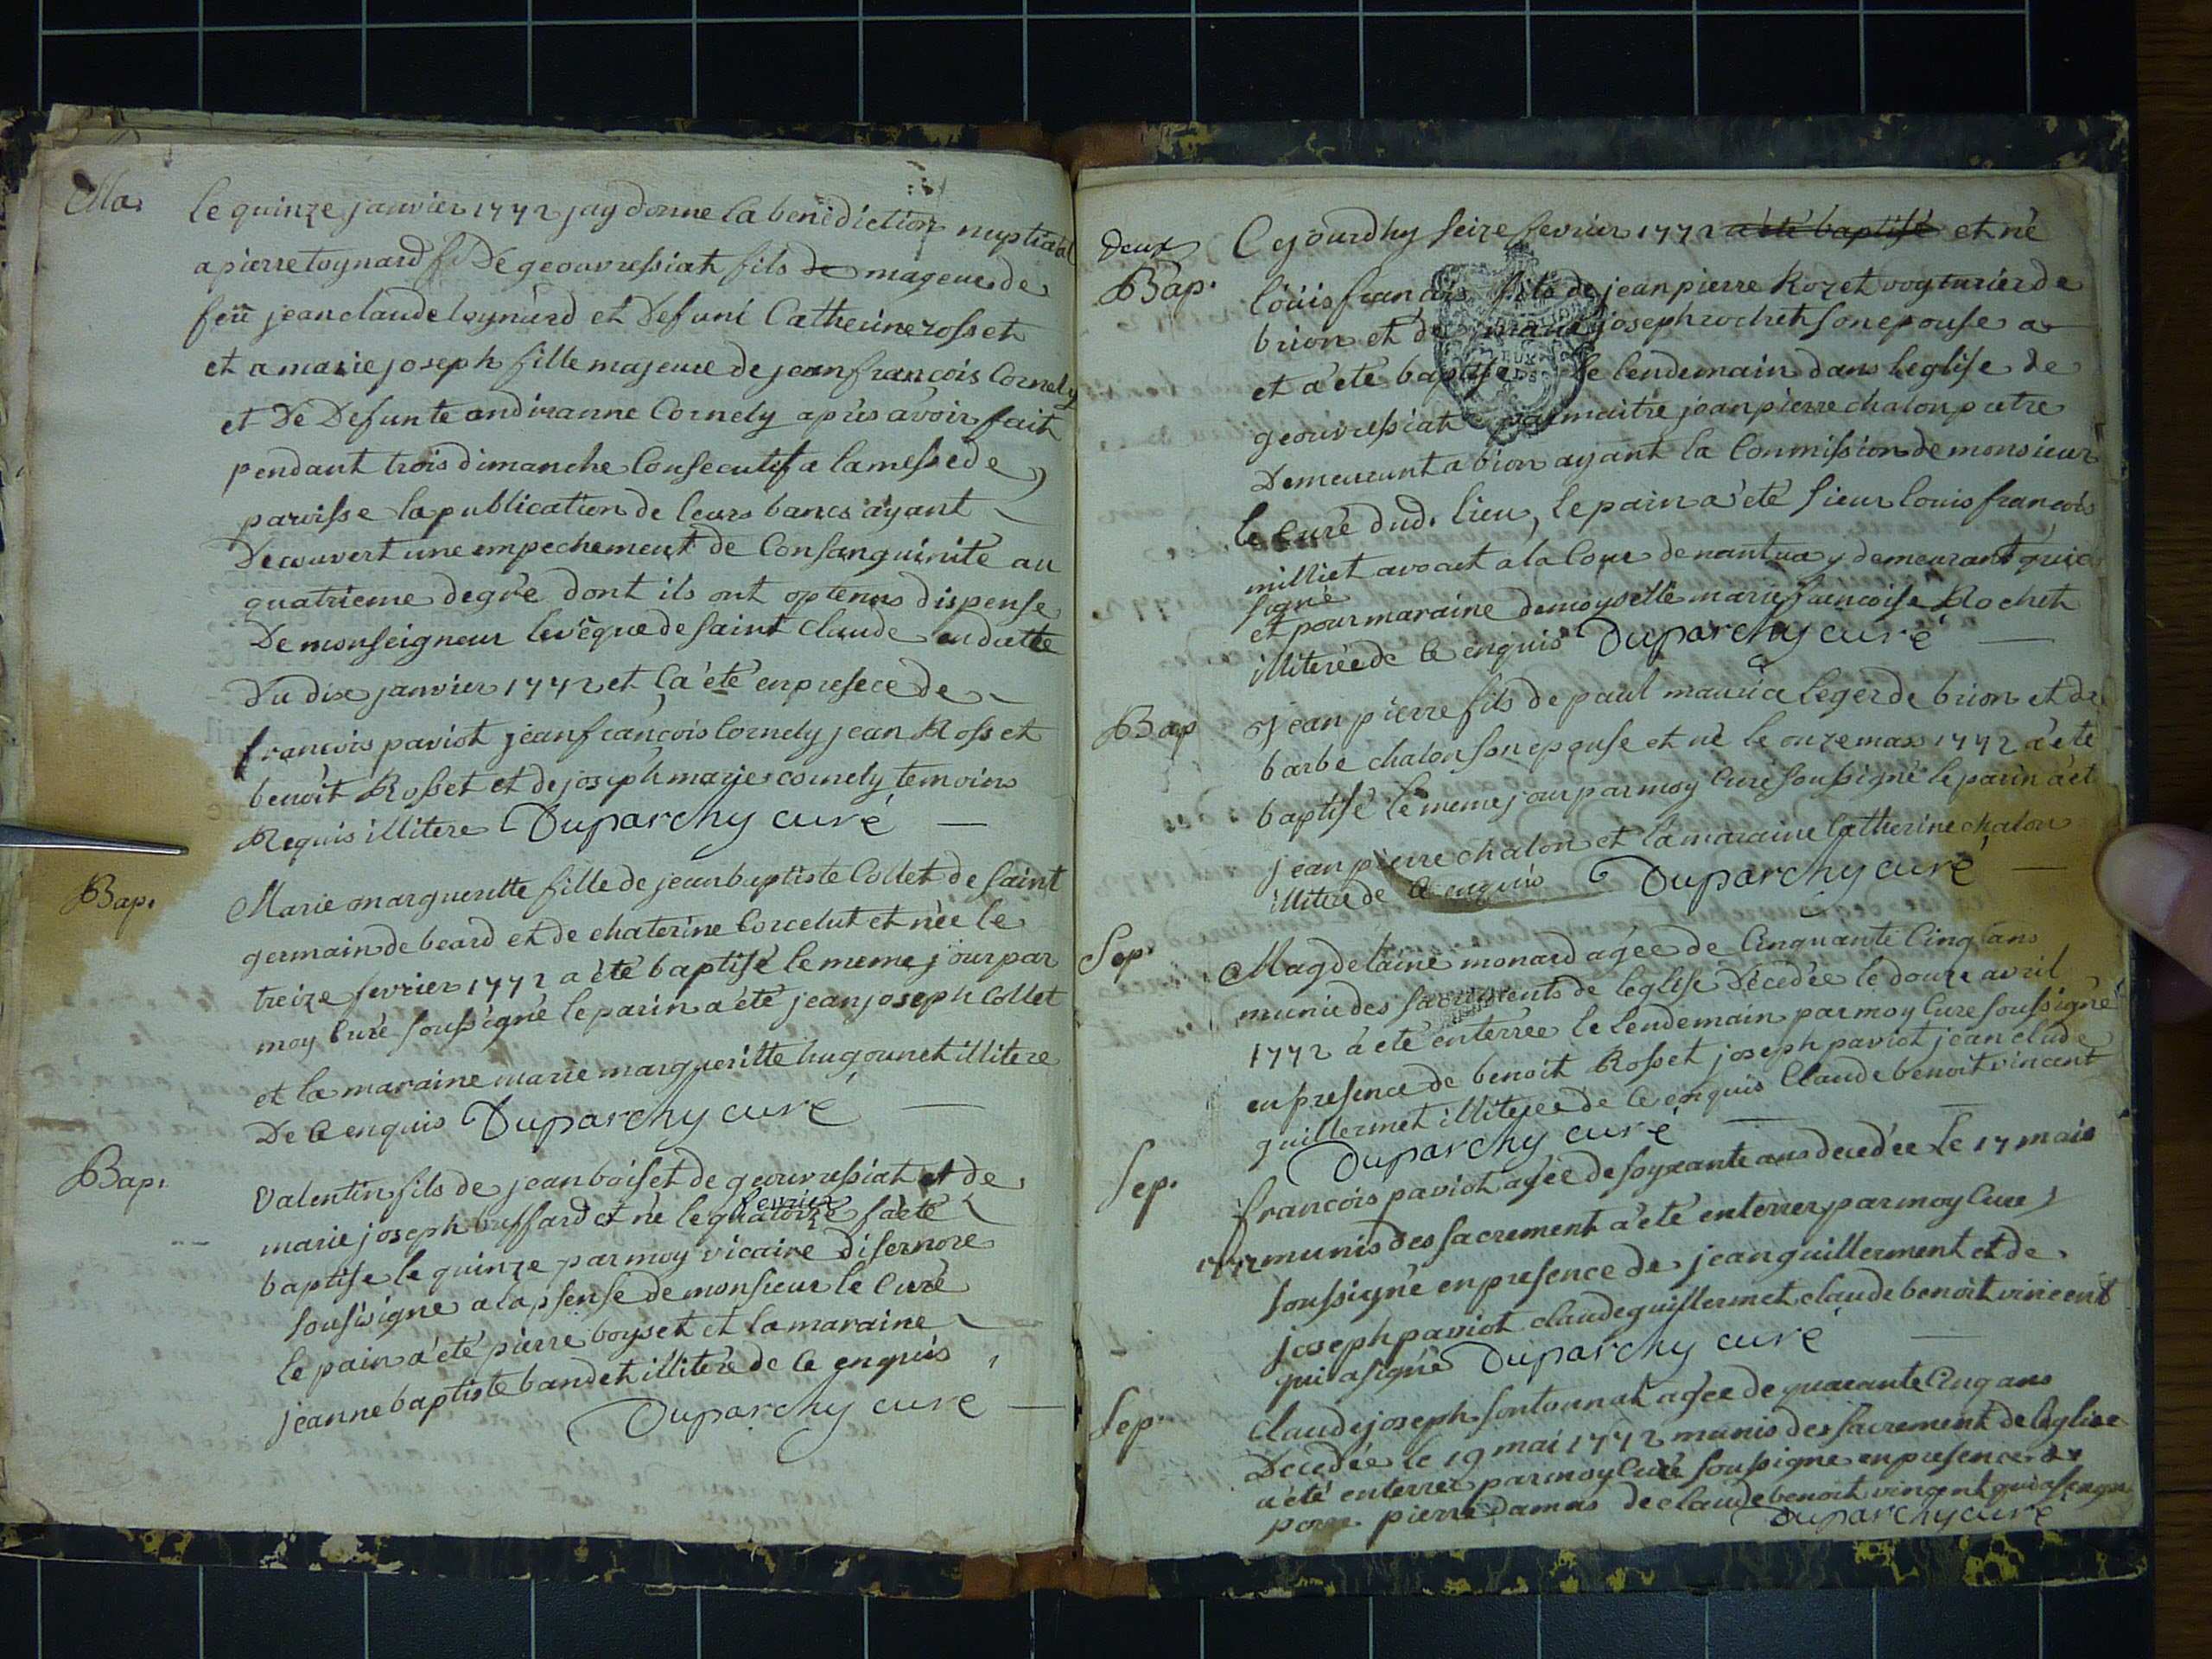 Mar. le quinze janvier 1772 jay donne la benediction nuptial
a pierre toynard f. De geouvressiat fils de mageure de
feu jean claude toynard et Defuni Catherine rosset
et a marie joseph fille majeure de jean francois Cornely
et De Defunte andreanne Cornely apres avoir fait
pendant trois dimanche Consecutif a la messe de
paroisse la publication de leurs bancs ayant
Decouvert une empechement de Consanguinité au
quatrieme degrée dont ils ont optenus dispense
De monseigneur levêque de saint Claude en datte
Du dix janvier 1772 et ça été en presece de
francois paviot jean francois Cornely jean Rosset
benoit Rosset et de joseph marie cornely temoins
Requis illitere Duparchy curé
Bap. Marie margueritte fille de jean baptiste Collet de saint
germain de beard et de chaterine Corcelut et née le
treize fevrier 1772 a été baptisé le meme jour par
moy Curé soussigné le parin a été jean joseph Collet
et la maraine marie margueritte hugounet illitere
De Ce enquis Duparchy curé
Bap. Valentin fils de jean boiset de geouvressiat et de
fevrier
marie joseph buffard et né le quatorze a été
baptise le quinze par moy vicaire disernore
soussigne a la psense de monsieur le Curé
le pain a été pierre boyset et la maraine
jeanne baptiste bandet illitére de Ce enquis
Duparchy curé
deux
Bap. Cejourdhy seize fevrier 1772 a été baptisé et né
louis francois fils de jean pierre Rozet voyturier de
brion et de marie joseph rochet son epouse a
et a été baptisé le lendemain dans leglise de
geouvressiat par maitre jean pierre chalon pretre
Demeurant a brion ayant la Commission de monsieur
le Curé dud. lieu, le pain a été sieur louis francois
milliet avocat a la Cour de nantua y demeurant qui a
signé
et pour maraine demoyselle marie francoise Rochet
illiterée de Ce enquis Duparchy curé
Bap Jean pierre fils de paul maurice leger de brion et de
barbe chalon son epouse et né le onze mars 1772 a été
baptisé le meme jour par moy Curé soussigné le parin a ét
jean pierre chalon et la maraine Catherine chalon
illitere de Ce enquis Duparchy curé
Sep. Magdelaine monard agée de Cinquante Cinq ans
munie des sacrements de leglise Décedée le douze avril
1772 a été enterrée le lendemain par moy Curé soussigné
en presence de benoit Rosset joseph paviot jean clude
guillermet illiterée de Ce enquis Claude benoit vincent
Duparchy curé
Sep. francois paviot agée de soyxante ans decedée le 17 mais
1772 munis des sacrement a été enterrer par moy Curé
soussigné en presence de jean guillerment et de
joseph paviot claude guillermet claude benoit vincent
qui a signé Duparchy curé
Sep. Claude joseph sontonnat agée de quarante Cinq ans
Decedée le 19 mai 1772 munis des sacrement de leglise
a été enterrer par moy Curé soussigne en presence de
pierre Damas de claude benoit vincent qui a signe
Duparchy curé